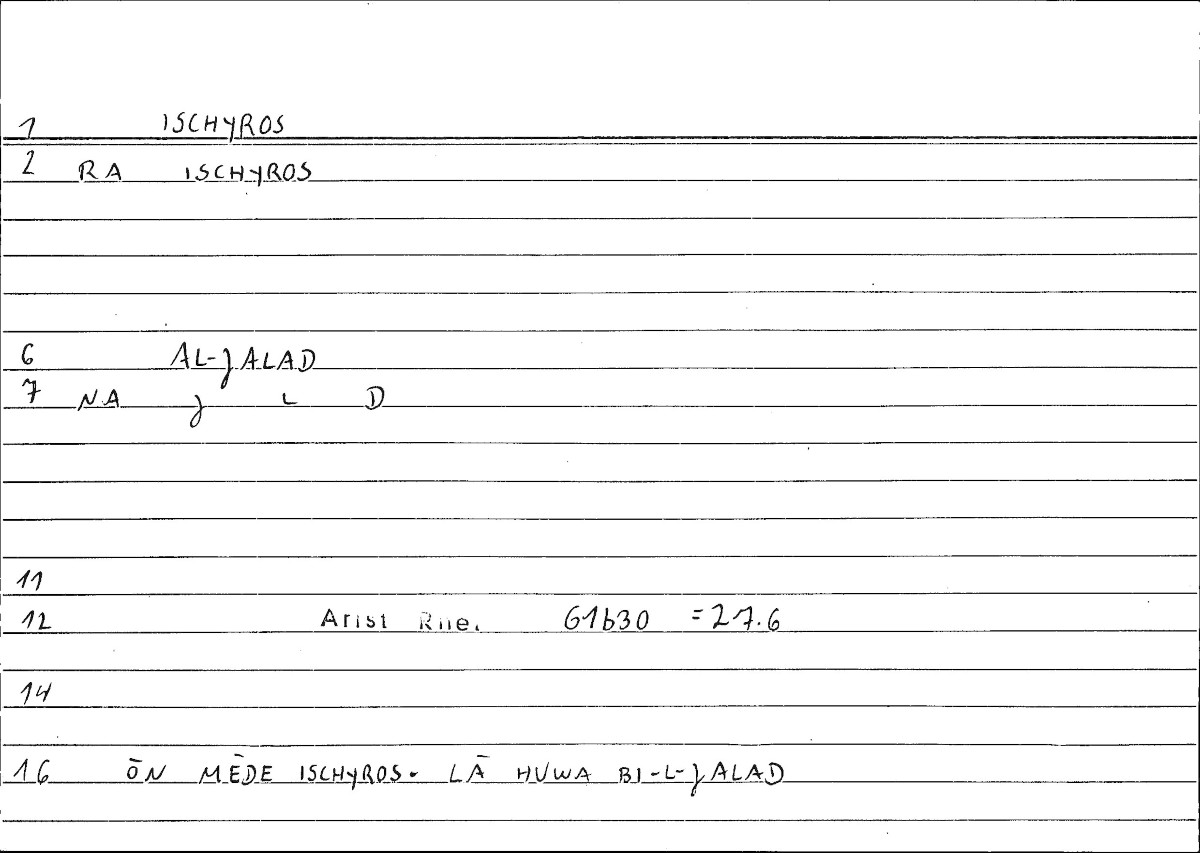 1 ISCHYROS
2 RA ISCHYROS
6 AL-JALAD
7 NA J L D
11
12 Arist Rhe. 61b30 =27.6
14
16 ŌN MĒDE ISCHYROS. LĀ HUWA BI-L-JALAD